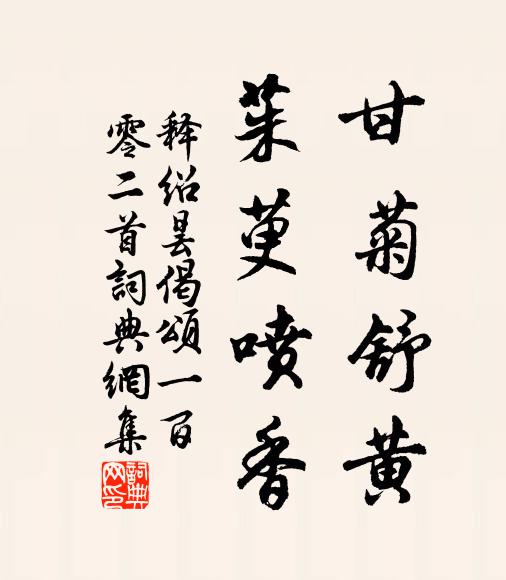 甘菊舒黄
茱萸噴香
释绍昙偈頌一百
零二首詞典網集
詞典網印